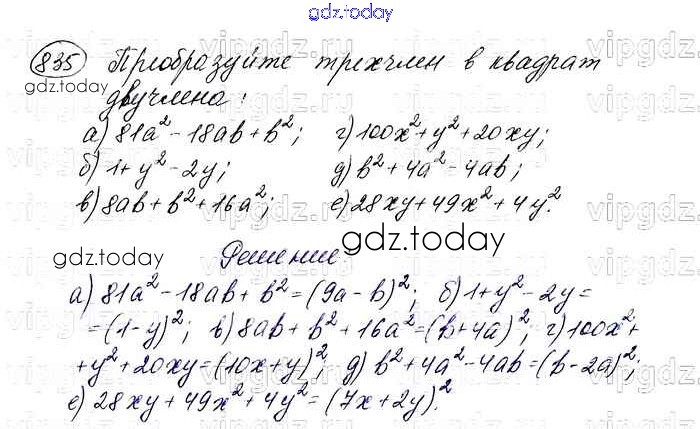 gdz.today
835 Преобразуйте трехчлен в квадрат
gdz.today
двучлена:
а) 81a² - 18ab + b²; г) 100x² + y² + 20xy;
б) 1 + y² - 2y; д) b² + 4a² - 4ab;
в) 8ab + b² + 16a²; е) 28xy + 49x² + 4y².
gdz.today Решение gdz.today
а) 81a² - 18ab + b² = (9a - b)²; б) 1 + y² - 2y =
= (1 - y)²; в) 8ab + b² + 16a² = (b + 4a)²; г) 100x² +
+ y² + 20xy = (10x + y)²; д) b² + 4a² - 4ab = (b - 2a)²;
е) 28xy + 49x² + 4y² = (7x + 2y)².